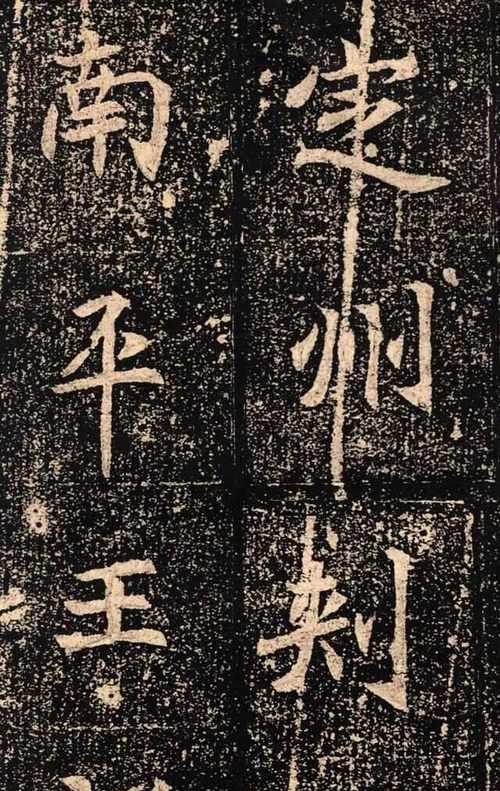 定州刺
南平王